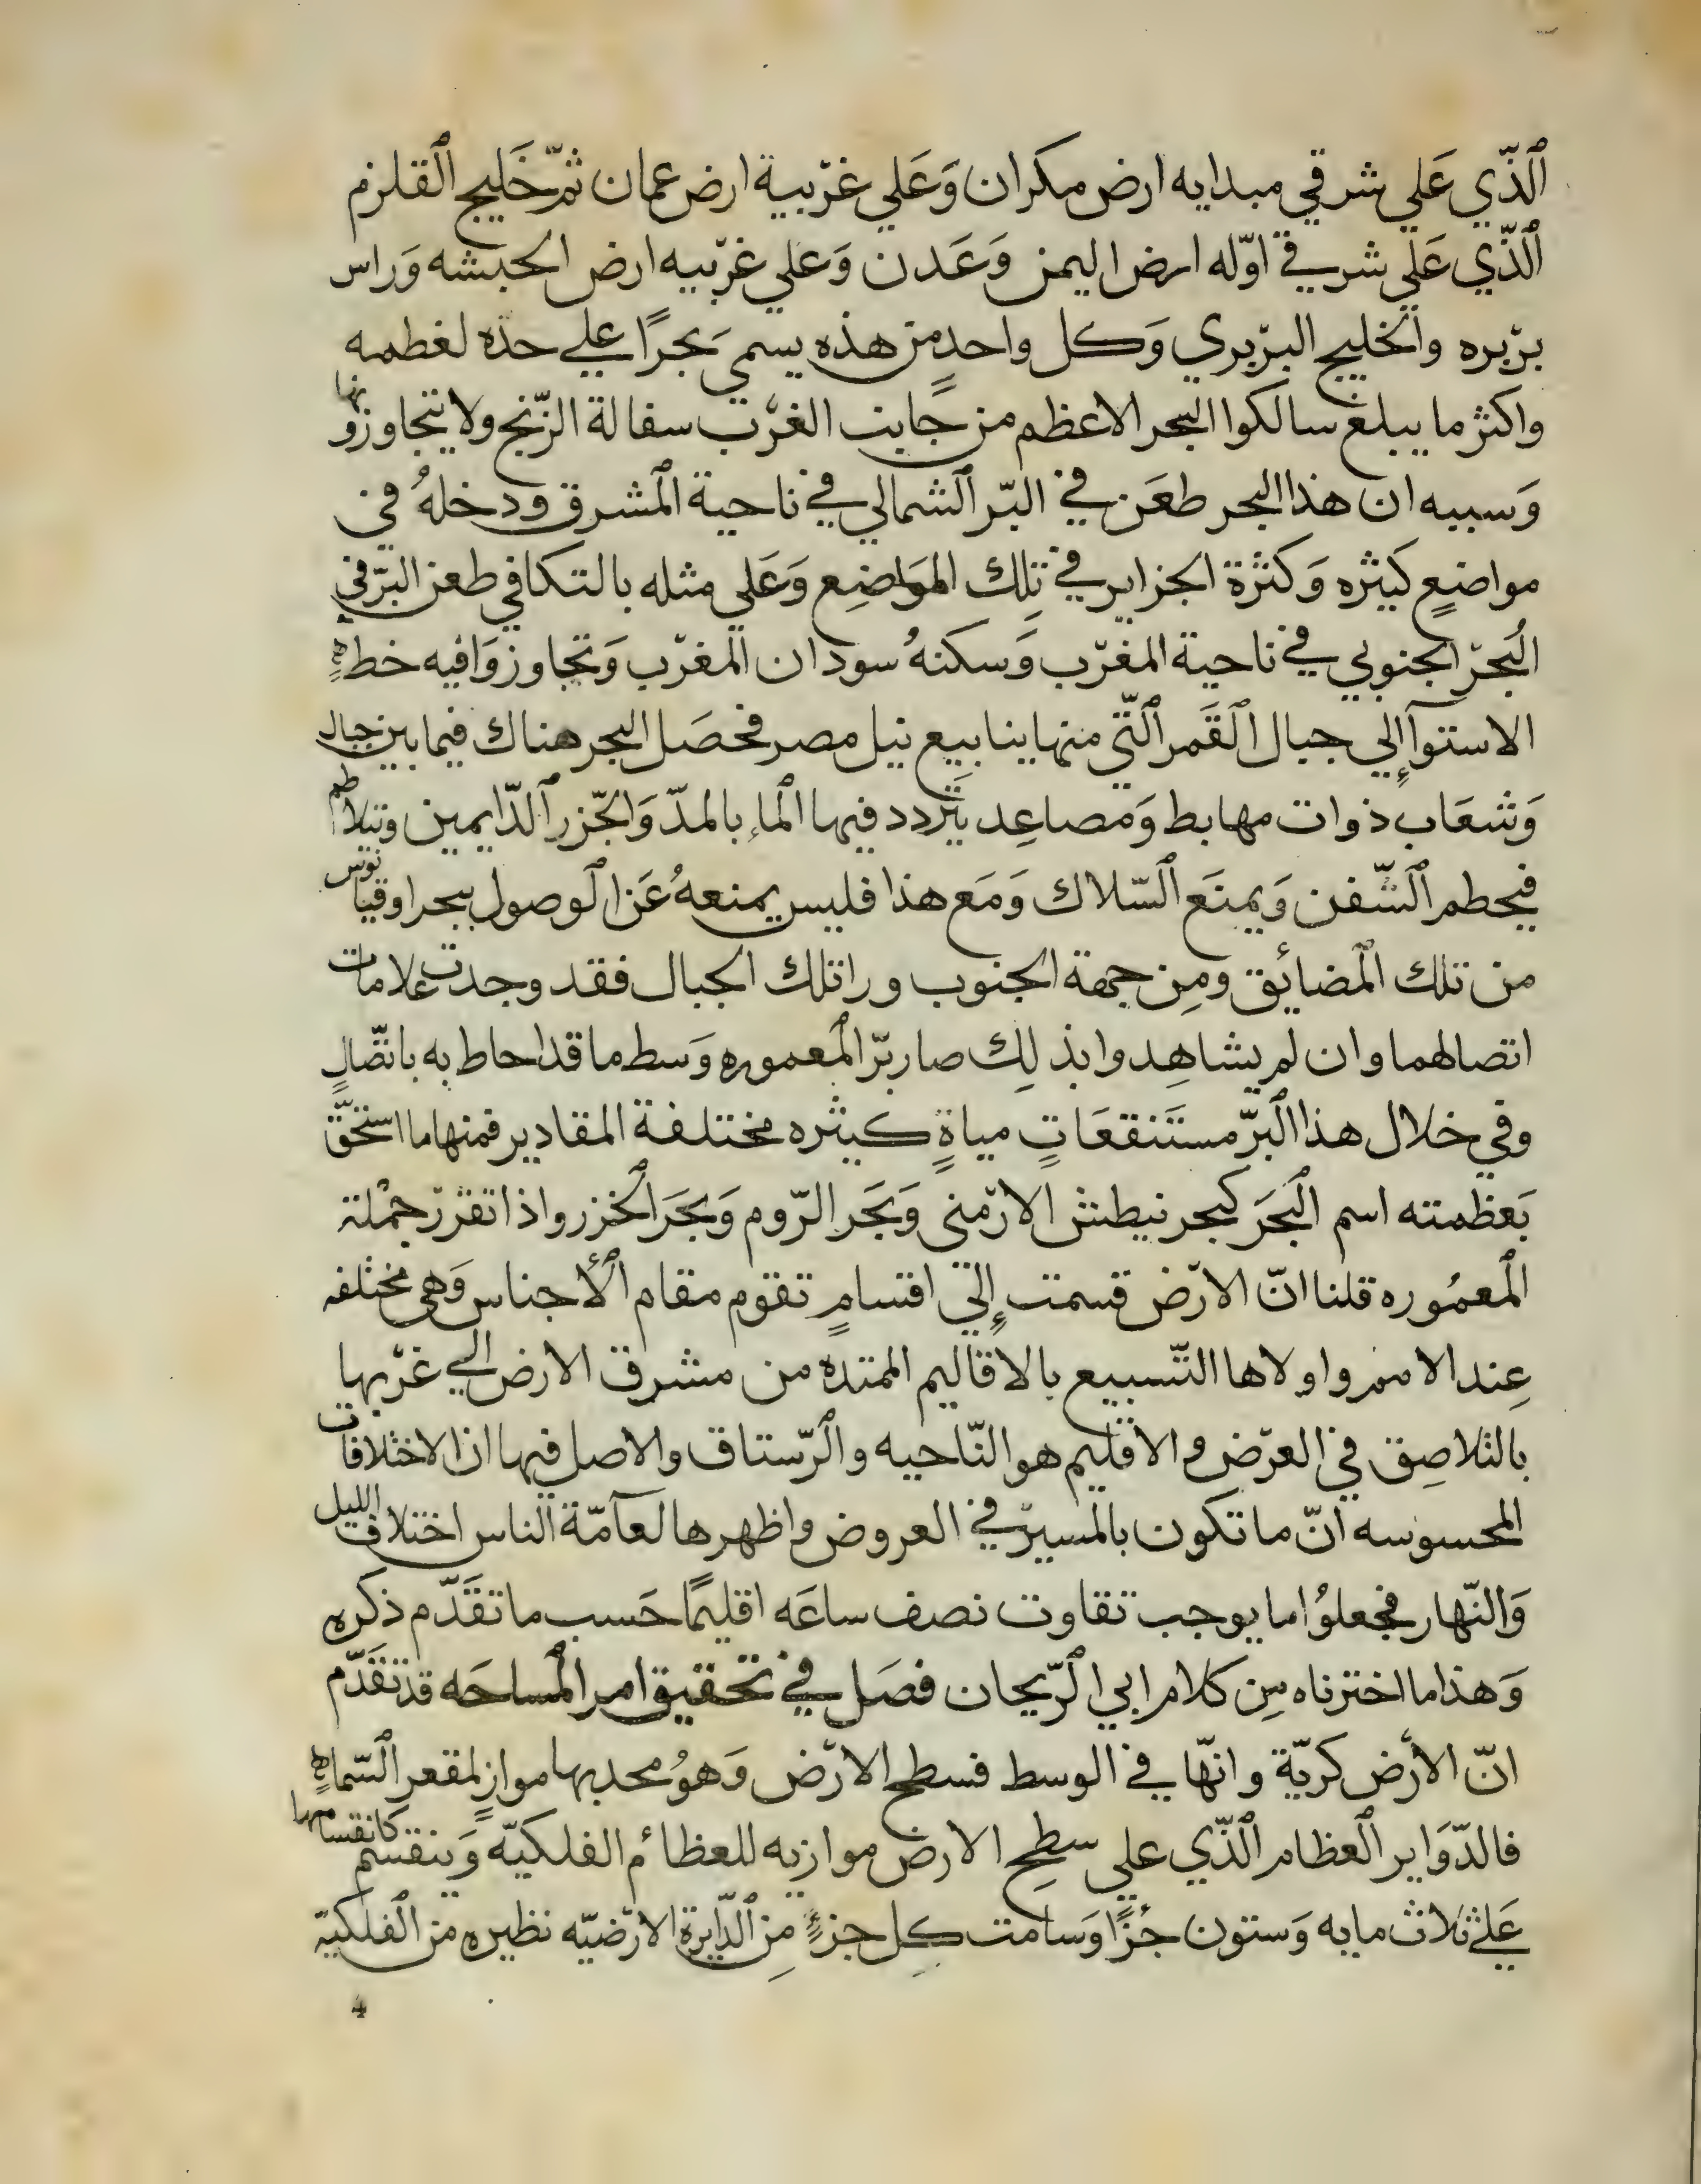 الذّي عَلي شرقي مبدايه ارض مكران وَعَلي غرّبية ارض عمان ثمّ خَليج القلزم
الذّي عَلي شرقي اوّله ارض اليمن وَعَدن وَعلي غرّبيه ارض الحبشه وَراس
برّبره والخليج البرّبري وَكل واحدٍ من هذه يسمي بَحرًا علي حدّه لعظمه
واكثر ما يبلغ سالكوا البحر الاعظم من جانب الغرّب سفالة الزّنج ولا يتجاوزونها
وَسببه ان هذا البحر طعَن في البرّ الشمالي في ناحية المشرق ودخلهُ في
مواضعٍ كثيره وَكثرة الجزاير في تلِك الموَاضِع وَعَلي مثله بالتكافي طعن البرّ في
البُحرّ الجنوبي في ناحية المغرّب وَسكنهُ سودان المغرّب وَتجاوزوَا فيه خط
الاستوآ إلي جبال القَمر التّي منها ينابيع نيل مصر فحصَل البحر هناك فيما بين جبال
وَشعَاب ذوات مهابط وَمصاعِد يَتردد فيها الماء بالمدّ وَالجّزر الدّايمين وتيلاطم
فيحطم السّفن وَيمنَع السّلاك وَمَع هذا فليس يمنعهُ عَن الوصول ببحر اوقيانوس
من تلك المضائق ومِن جهة الجنوب ورا تلك الجبال فقد وجدت علامات
اتصالهما وان لم يشاهِدوا بذلِك صار برّ المعموره وَسط ما قد احاط به باتصّالٍ
وفي خلال هذا البرّ مستَنقعَاتٍ مياةٍ كثيره مختلفة المقادير فمنها ما استحقّ
بَعظمته اسم البَحرَ كبحر نيطش الارّمني وَبَحر الرّوم وَبحَر الخزر واذا تقرّرّ جمْلة
المعمُوره قلنا انّ الارّض قسمت إلي اقسامٍ تقوم مقام الأجناس وَهي مختلفه
عِند الامم واولاها التّسبيع بالاقاليم الممتدة من مشرق الارض الي غرّبها
بالتلاصِق في العرّض والاقليم هو النّاحيه والرّستاق والاصل فيها ان الاختلافات
المحسوسه انّ ما تكون بالمسيرّ في العروض واظهرها لعآمّة الناس اختلاف الليل
وَالنّهار فجعلوُا ما يوجب تفاوت نصف ساعَه اقليمًا حَسب ما تقَدّم ذكره
وَهذا ما اخترناه مِن كلام ابي الرّيحان فصَل في تحقيق امر المساحَه قد تقَدّم
انّ الأرّض كريّة وانهّا في الوسط فسطح الارّض وَهوُ محدبها موازٍ لمقعر السّماء
فالدّوَاير العظام الذّي علي سطحِ الارض موازيه للعظائم الفلكيّه وَينقسم كانقسامها
عَلي ثلاث مايه وَستون جزًا وَسامت كل جزءٍ مِن الدّايرة الارّضيّه نظيره من الفلكية
4